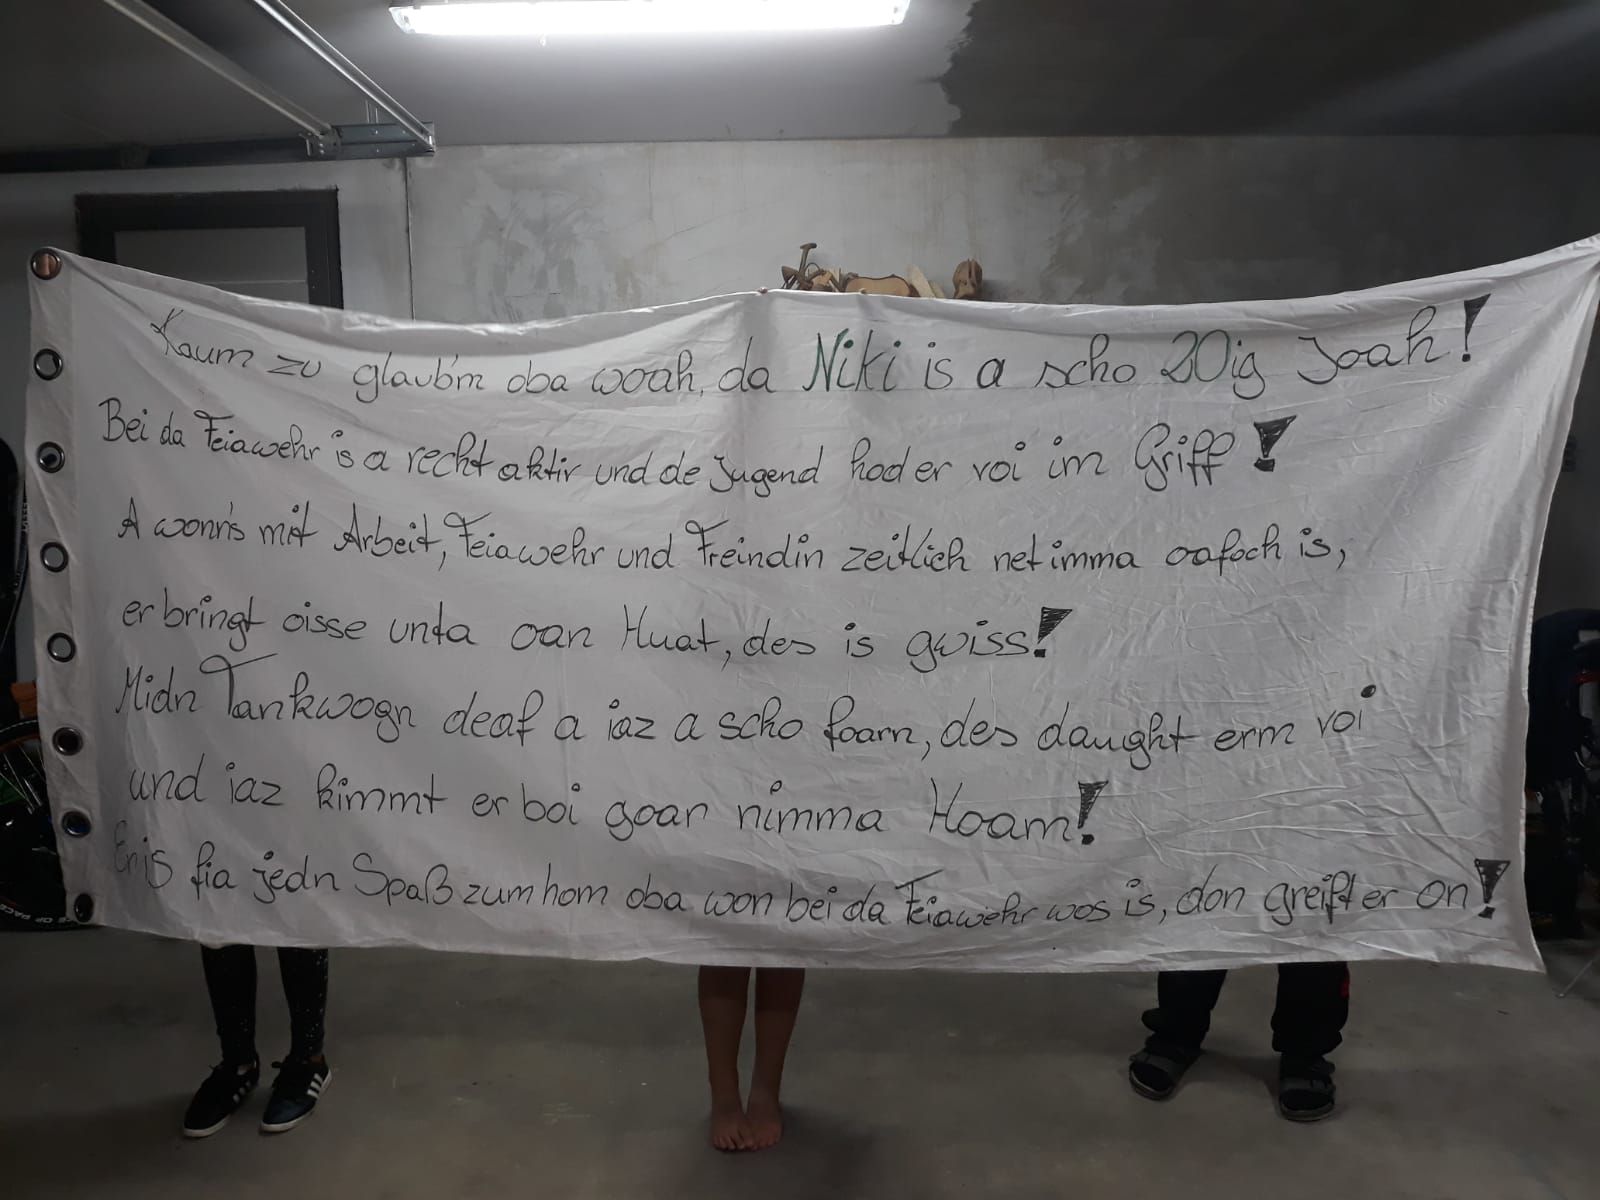 Kaum zu glaub'm oba woah, da Niki is a scho 20ig Joah!
Bei da Feiawehr is a recht aktiv und de Jugend hod er voi im Griff!
A wonn's mit Arbeit, Feiawehr und Freindin zeitlich net imma oafoch is,
er bringt oisse unta oan Huat, des is gwiss!
Midn Tankwogn deaf a iaz a scho foarn, des daught erm voi
und iaz kimmt er boi goar nimma Hoam!
En is fia jedn Spaß zum hom oba won bei da Feiawehr wos is, don greift er on!